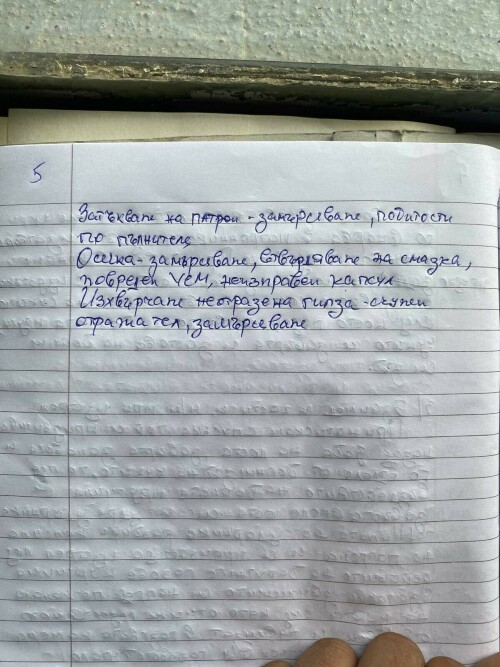 5
Затъкване на патрон - замърсяване, подитости
по пълнителя
Осечка - замърсяване, втвърдяване на смазка,
повреден УСМ, неизправен капсул
Изхвърчане неотразена гилза - счупен
отражател, замърсяване